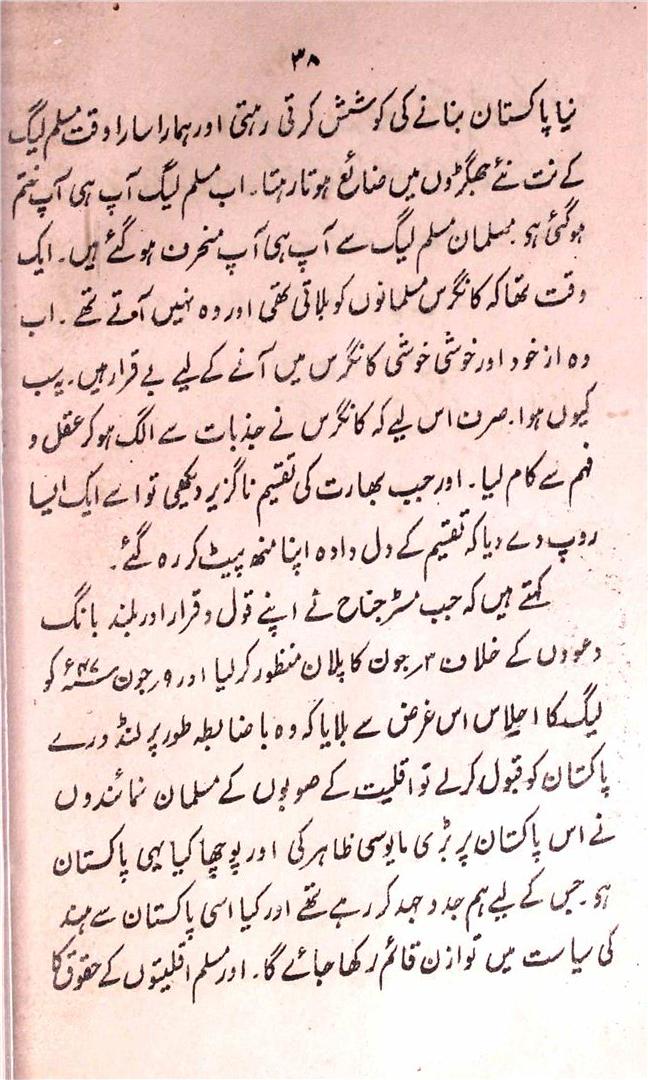 ۳۸
نیا پاکستان بنانے کی کوشش کرتی رہتی اور ہمارا سارا وقت مسلم لیگ
کے نت نئے جھگڑوں میں ضائع ہوتا رہتا۔ اب مسلم لیگ آپ ہی آپ ختم
ہو گئی ہو۔ مسلمان مسلم لیگ سے آپ ہی آپ منحرف ہو گئے ہیں۔ ایک
وقت تھا کہ کانگرس مسلمانوں کو بلاتی تھی اور وہ نہیں آتے تھے۔ اب
وہ از خود اور خوشی خوشی کانگرس میں آنے کے لیے بے قرار ہیں۔ یہ سب
کیوں ہوا۔ صرف اس لیے کہ کانگرس نے جذبات سے الگ ہو کر عقل و
فہم سے کام لیا۔ اور جب بھارت کی تقسیم ناگزیر دیکھی تو اسے ایک ایسا
روپ دے دیا کہ تقسیم کے دل دادہ اپنا منھ پیٹ کر رہ گئے۔
کہتے ہیں کہ جب مسٹر جناح نے اپنے قول و قرار اور بلند بانگ
دعووں کے خلاف ۳ر جون کا پلان منظور کر لیا اور ۹ر جون ۴۷ء کو
لیگ کا اجلاس اس غرض سے بلایا کہ وہ باضابطہ طور پر لنڈورے
پاکستان کو قبول کرلے تو اقلیت کے صوبوں کے مسلمان نمائندوں
نے اس پاکستان پر بڑی مایوسی ظاہر کی اور پوچھا کیا یہی پاکستان
ہو۔ جس کے لیے ہم جدوجہد کر رہے تھے اور کیا اسی پاکستان سے ہند
کی سیاست میں توازن قائم رکھا جائے گا۔ اور مسلم اقلیتوں کے حقوق کا